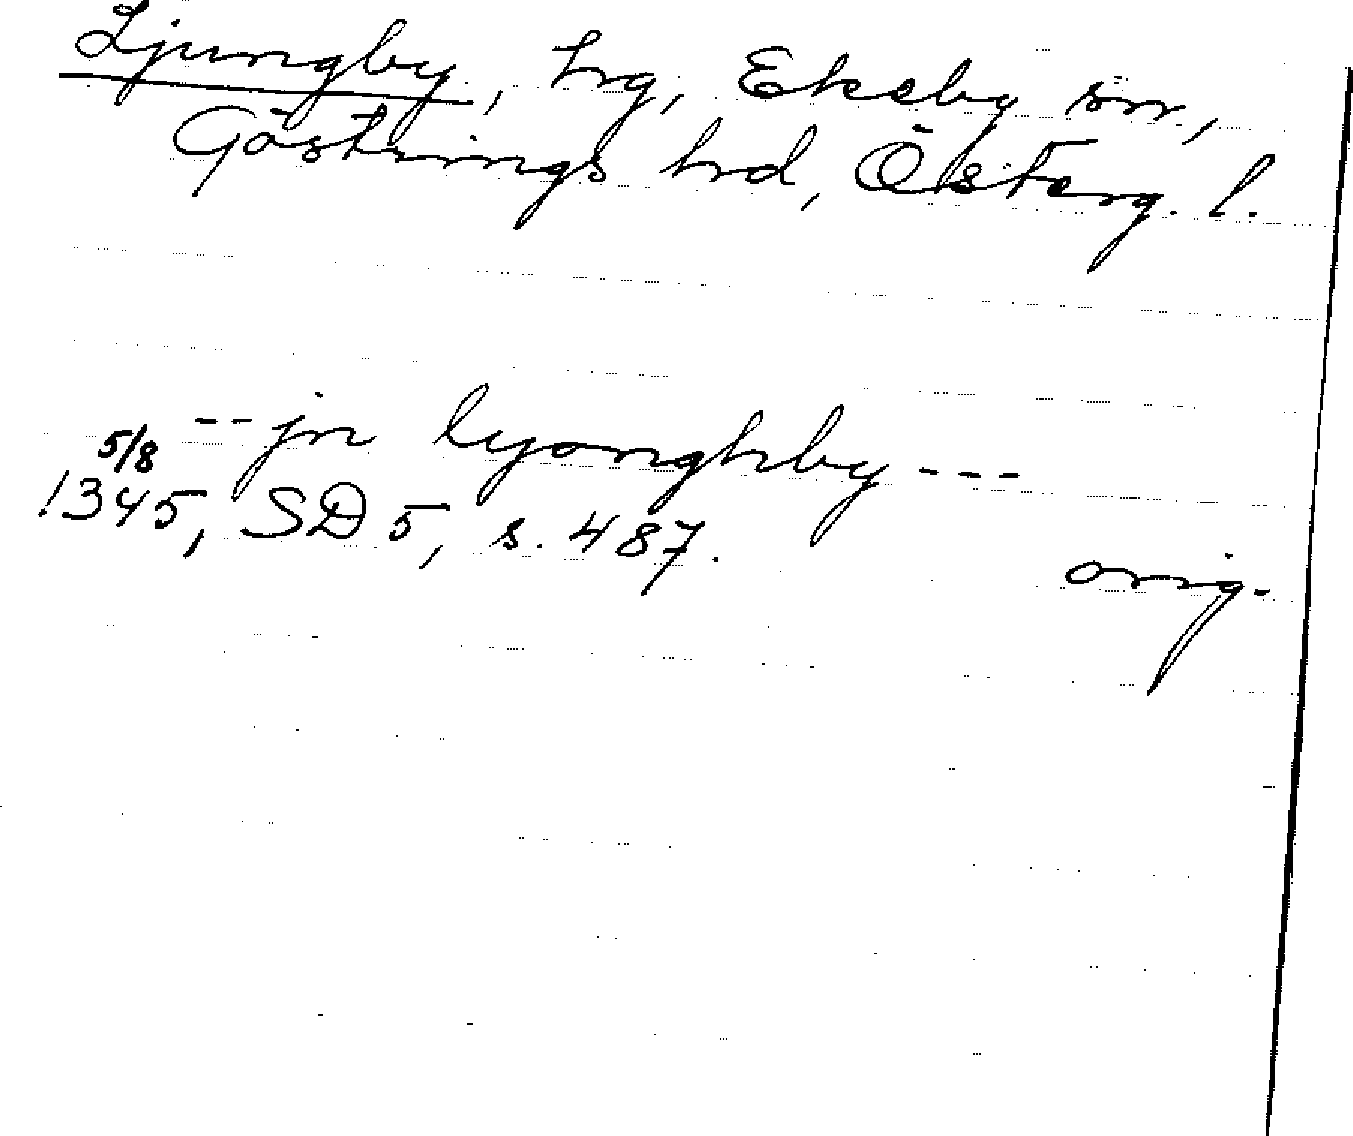 Ljungby, hg, Ekeby sn,
Göstrings hd, Österg. l.
-- jn lyonghby ---
5/8
1345, SD 5, s. 487.
orig.